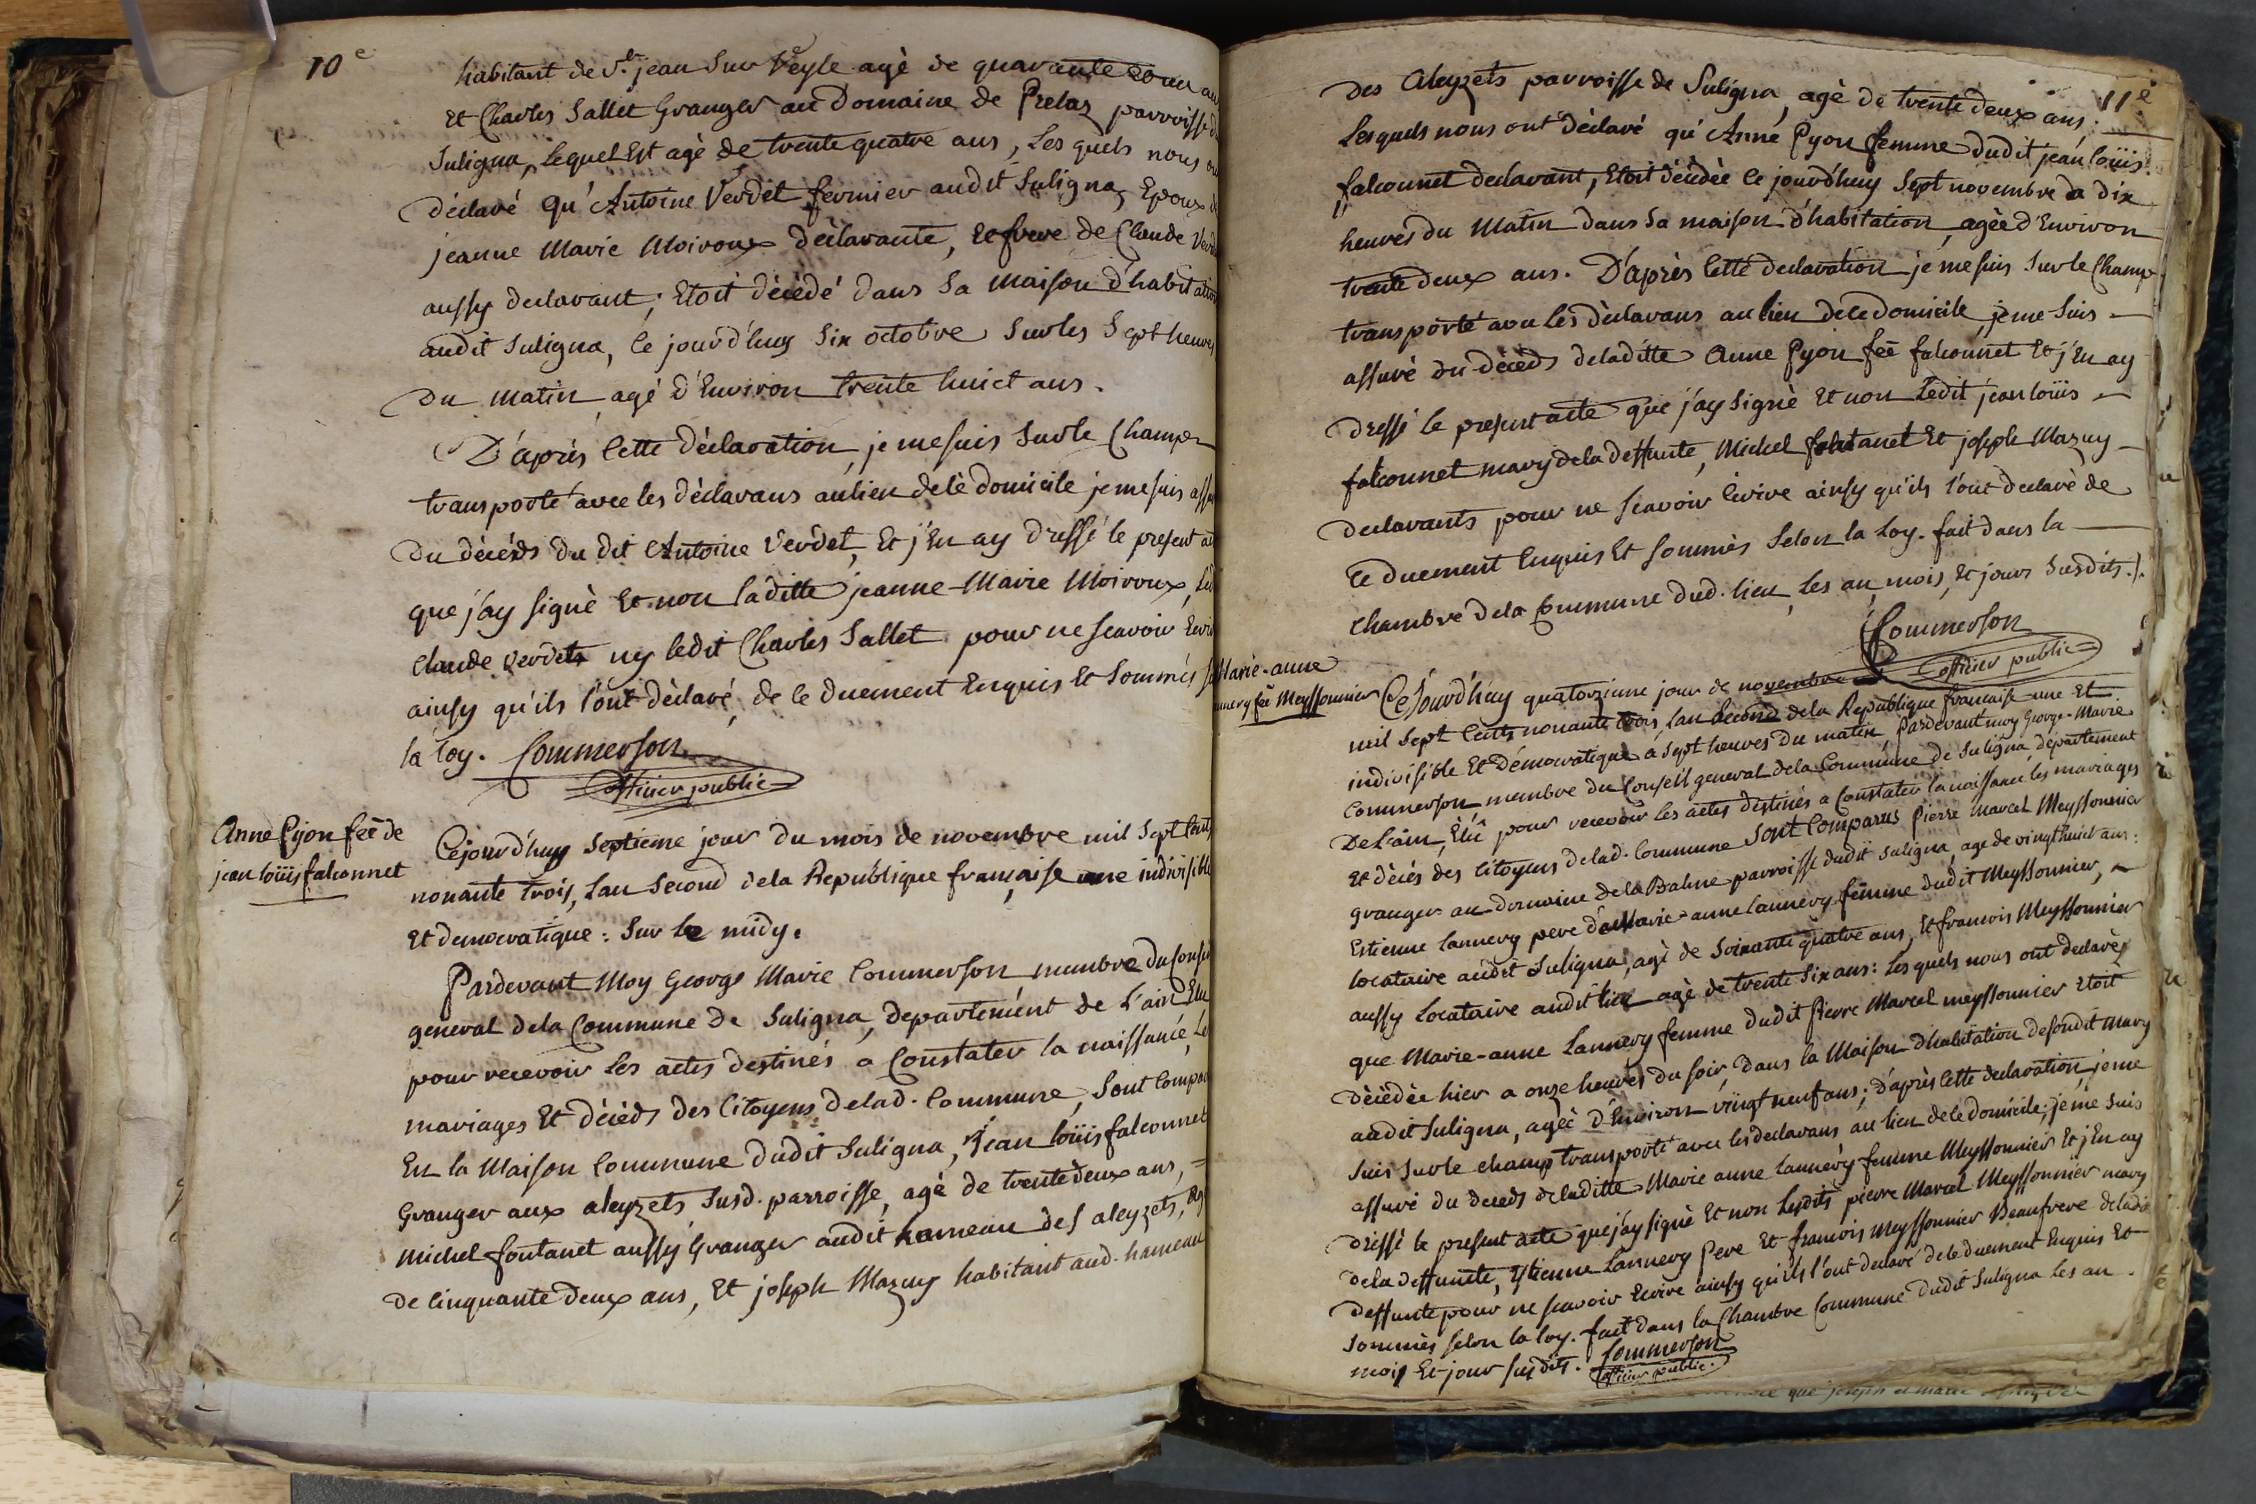 10e
habitant de St. jean Sur Veyle agé de quarante et un an
Et Charles Sallet Granger au Domaine de Prelaz parroisse d
Suligna, Lequel Est agé de trente quatre ans, Les quels nous on
Déclaré qu'Antoine Verdet fermier audit Suligna, Epoux d
jeanne Marie Moiroux Déclarante, et frere de Claude Verd
aussy declarant; Etoit décédé dans Sa Maison d'habitation
audit Suligna, Ce jourd'huy Six octobre Sur les Sept heures
Du matin, agé d'Environ trente huict ans.
D'après Cette Déclaration, je me suis Sur le Champ
transporté avec les déclarans au lieu de ce domicile je me suis assu
Du décéds du dit Antoine Verdet, Et j'En ay Dressé le present a
que j'ay signé Et non laditte jeanne-Marie Moiroux, Led
Claude Verdet ny ledit Charles Sallet pour ne Scavoir Ecri
ainsy qu'ils l'ont déclaré, de ce Duement Enquis Et Sommés S
la loy. Commerson
officier public
Anne Pyon fee de
jean loüis falconnet
Cejourd'huy Septieme jour du mois de novembre mil Sept Cent
nonante trois, Lan Second de la République française une indivisible
Et democratique: Sur le midy.
Pardevant Moy George Marie Commerson membre du Conseil
general de la Commune de Suligna, Departement de L'ain Elu
pour recevoir les actes destinés a Constater la naissance, Le
mariages Et décéds des Citoyens de lad. Commune, Sont Compar
En la Maison Commune dudit Suligna, jean loüis falconnet
Granger aux aleyzets Susd. parroisse, agé de trente deux ans,
Michel fontanet aussy Granger audit hameau des aleyzets, ag
de Cinquante deux ans, Et joseph Mazuy habitant aud. hameau
11e
Des Aleyzets parroisse de Suligna, agé de trente deux ans.
Lesquels nous ont Déclaré qu'Anne Pyon femme dudit jean loüis
falconnet declarant, Etoit décédée ce jourd'huy Sept novembre a dix
heures du Matin dans Sa maison d'habitation, agée d'Environ
trente deux ans. D'après Cette declaration je me suis Sur le Champ
transporté avec les déclarans au lieu de ce domicile, je me Suis
assuré du décéds de laditte Anne Pyon fee falconnet Et j'En ay
Dressé le present acte que j'ay signé Et non Ledit jean loüis
falconnet mary de la deffunte, Michel fontanet Et joseph Mazuy
Declarants pour ne Scavoir Ecrire ainsy qu'ils l'ont declaré de
Ce Duement Enquis Et Sommés Selon la Loy. fait dans la
Chambre de la Commune dud. lieu, Les an, mois, Et jours Susdits.
Commerson
officier public
Marie-anne
fe Meyssonnier
Ce Jourd'huy quatorzieme jour de novembre
mil Sept Cents nonante trois, Lan Second de la Republique française une Et
indivisible Et Démocratique à Sept heures du matin Pardevant moy George-Marie
Commerson membre du Conseil general de la Commune de Suligna département
De L'ain, Elû pour recevoir les actes destinés a Constater la naissance les mariages
Et décés des Citoyens de lad. Commune Sont Comparus Pierre Marcel Meyssonnier
granger au domaine de la Balme parroisse dudit Suligna, age de vingt huict ans:
Estienne Lannery pere d'a Marie-anne Lannery femme dudit Meyssonnier,
locataire audit Suligna, agé de Soixante quatre ans, Et francois Meyssonnier
aussy Locataire audit lieu agé de trente Six ans: Lesquels nous ont declarés
que Marie-anne Lannery femme dudit Pierre Marcel meyssonnier Etoit
décédée hier a onze heures du soir, dans la Maison d'habitation de sondit mary
audit Suligna, agée d'Environ vingt neuf ans; d'après Cette declaration, je me
Suis Sur le champ transporté avec les declarans au lieu de ce domicile; je me suis
assuré du deceds de laditte Marie anne Lannery femme Meyssonnier Et j'En ay
Dressé le present acte que j'ay signé Et non Lesdits pierre Marcel Meyssonnier mary
de la deffunte, Estienne Lannery Pere Et francois Meyssonnier Beaufrere de lad.
Deffunte pour ne scavoir Ecrire ainsy qu'ils l'ont declaré de ce duement Enquis Et
Sommés selon la loy. fait dans la Chambre Commune dudit Suligna Les an
mois Et jour susdits. Commerson
officier public.